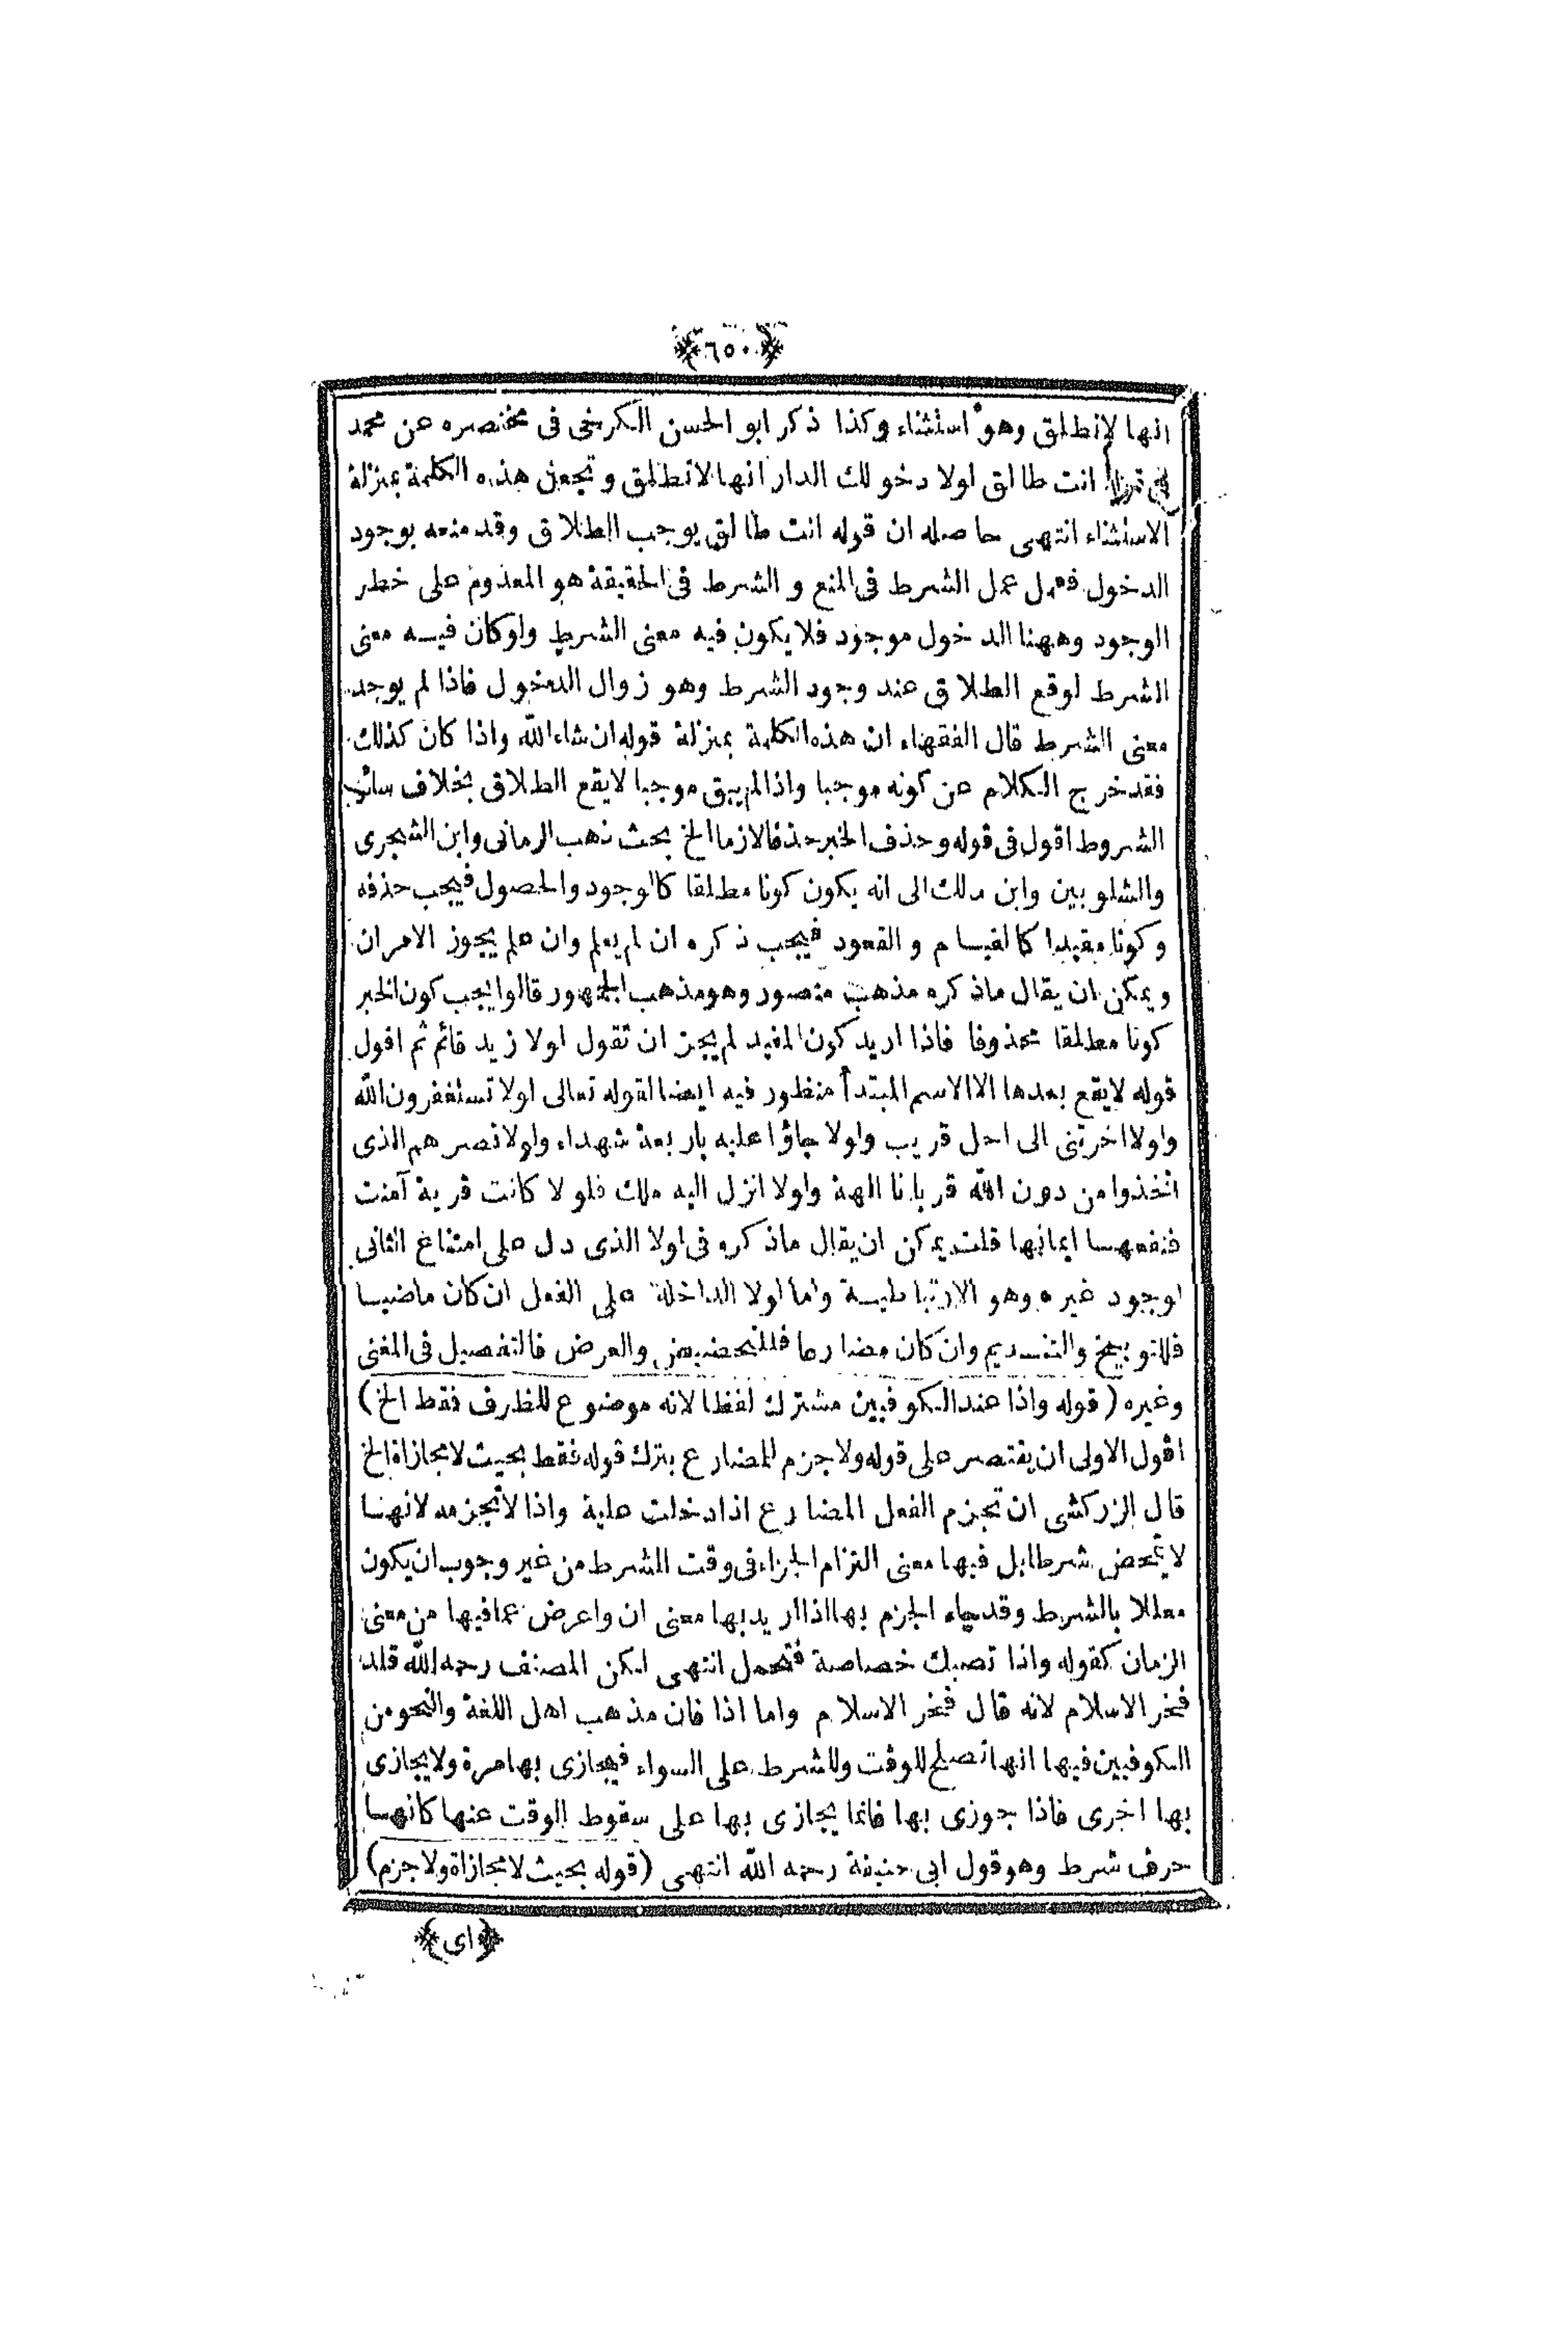 ﴿٦٥٠﴾
انها لا تطلق وهو استثناء وكذا ذكر ابو الحسن الكرخى فى مختصره عن محمد
انت طالق لولا دخولك الدار انها لا تطلق وتجعل هذه الكلمة بمنزلة
الاستثناء انتهى حاصله ان قوله انت طالق يوجب الطلاق وقد منعه بوجود
الدخول فعمل عمل الشرط فى المنع والشرط فى الحقيقة هو المعدوم على خطر
الوجود وههنا الدخول موجود فلا يكون فيه معنى الشرط ولو كان فيه معنى
الشرط لوقع الطلاق عند وجود الشرط وهو زوال الدخول فاذا لم يوجد
معنى الشرط قال الفقهاء ان هذه الكلمة بمنزلة قوله ان شاء الله واذا كان كذلك
فقد خرج الكلام عن كونه موجبا واذا لم يبق موجبا لا يقع الطلاق بخلاف سائر
الشروط اقول فى قوله وحذف الخبر حذفا لازما الخ بحث ذهب الرمانى وابن الشجرى
والشلوبين وابن مالك الى انه يكون كونا مطلقا كالوجود والحصول فيجب حذفه
وكونا مقيدا كالقيام والقعود فيجب ذكره ان لم يعلم وان علم يجوز الامران
ويمكن ان يقال ما ذكره مذهب منصور وهو مذهب الجمهور قالوا يجب كون الخبر
كونا مطلقا محذوفا فاذا اريد كون المقيد لم يجز ان تقول لولا زيد قائم ثم اقول
قوله لا يقع بعدها الا الاسم المبتدأ منظور فيه ايضا لقوله تعالى لولا تستغفرون الله
ولولا اخرتنى الى اجل قريب ولولا جاؤا عليه باربعة شهداء ولولا نصرهم الذى
اتخذوا من دون الله قربانا الهة ولولا انزل اليه ملك فلولا كانت قرية آمنت
فنفعها ايمانها قلت يمكن ان يقال ما ذكره فى لولا الذى دل على امتناع الثانى
لوجود غيره وهو الارتباطية واما لولا الداخلة على الفعل ان كان ماضيا
فللتوبيخ والتنديم وان كان مضارعا فللتحضيض والعرض فالتفصيل فى المغنى
وغيره (قوله واذا عند الكوفيين مشترك لفظا لانه موضوع للظرف فقط الخ)
اقول الاولى ان يقتصر على قوله ولا جزم للمضارع بترك قوله فقط بحيث لا مجازاة الخ
قال الزركشى ان تجزم الفعل المضارع اذا دخلت عليه واذا لا تجزمه لانها
لا تتمحض شرطا بل فيها معنى التزام الجزاء فى وقت الشرط من غير وجوب ان يكون
معللا بالشرط وقد جاء الجزم بها اذا اريد بها معنى ان واعرض عما فيها من معنى
الزمان كقوله واذا تصبك خصاصة فتحمل انتهى لكن المصنف رحمه الله قلد
فخر الاسلام لانه قال فخر الاسلام واما اذا فان مذهب اهل اللغة والنحو من
الكوفيين فيها انها تصلح للوقت وللشرط على السواء فيجازى بها مرة ولا يجازى
بها اخرى فاذا جوزى بها فانما يجازى بها على سقوط الوقت عنها كانها
حرف شرط وهو قول ابى حنيفة رحمه الله انتهى (قوله بحيث لا مجازاة ولا جزم)
﴿اى﴾